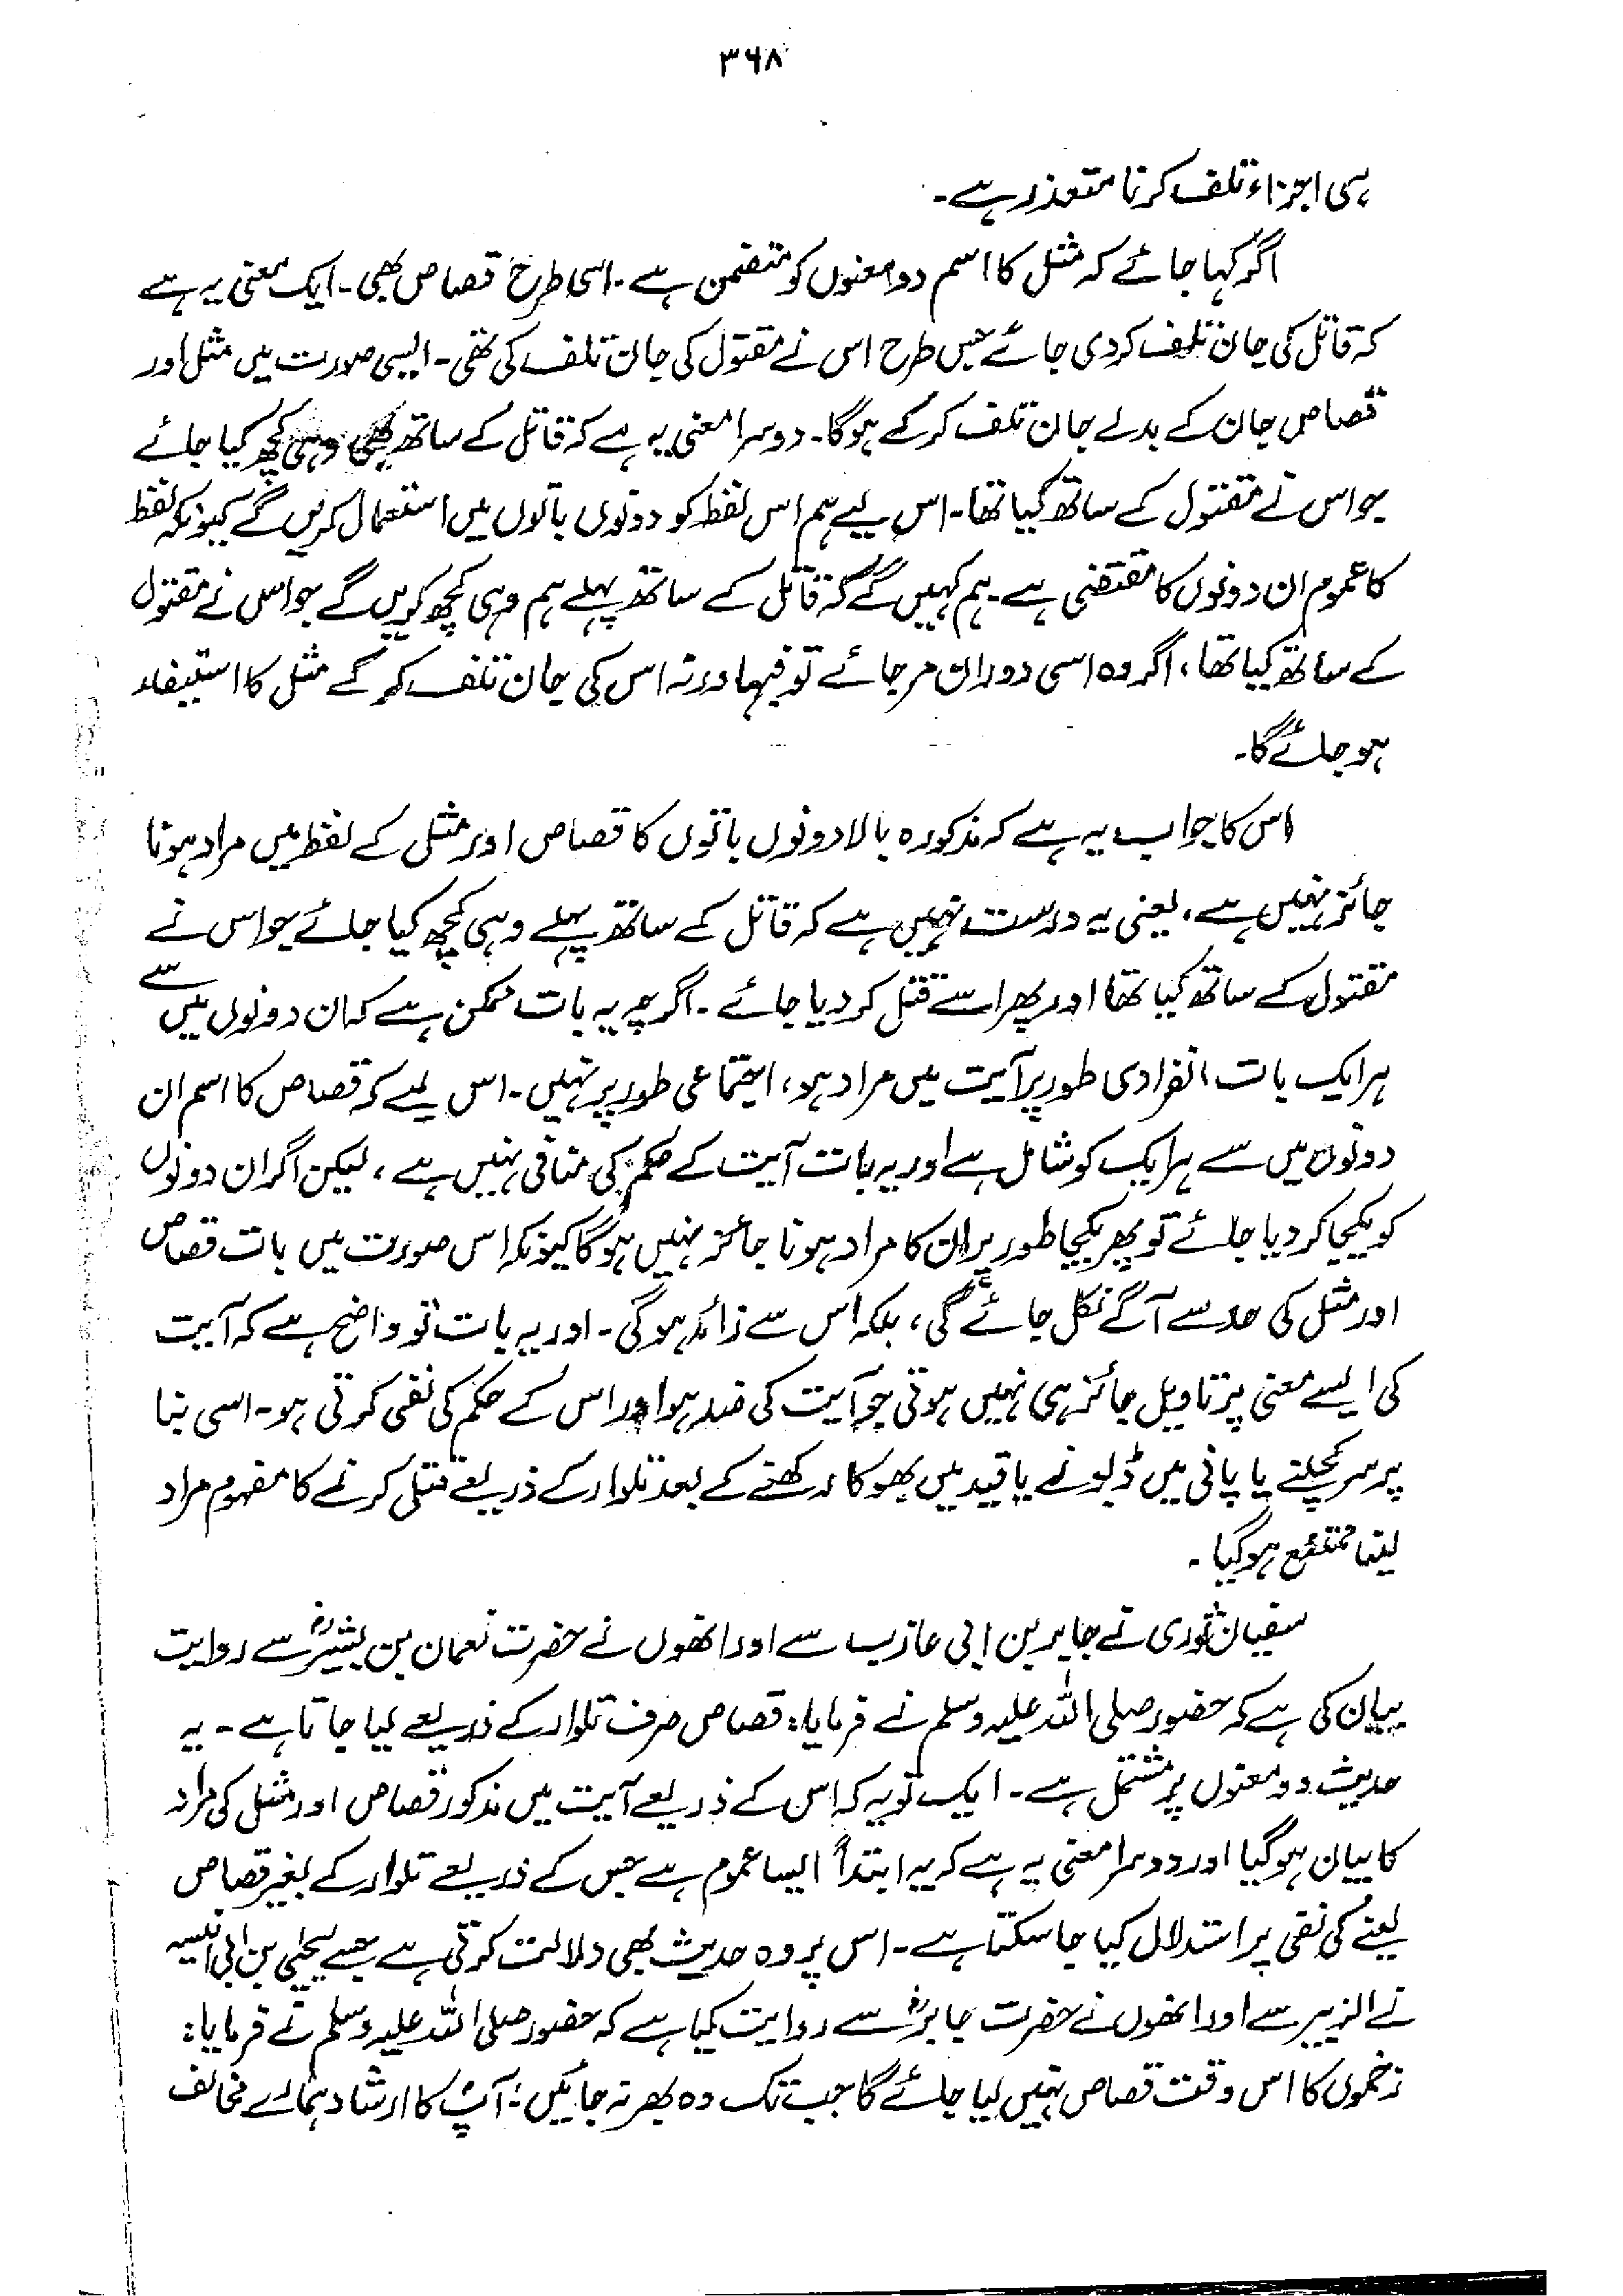 ۳۶۸
ہی اجزاء تلف کرنا متعذر ہے۔
اگر کہا جائے کہ مثل کا اسم دو معنوں کو متضمن ہے۔ اسی طرح قصاص بھی۔ ایک معنی یہ ہے
کہ قاتل کی جان تلف کر دی جائے جس طرح اس نے مقتول کی جان تلف کی تھی۔ ایسی صورت میں مثل اور
قصاص جان کے بدلے جان تلف کر کے ہوگا۔ دوسرا معنی یہ ہے کہ قاتل کے ساتھ بھی وہی کچھ کیا جائے
جو اس نے مقتول کے ساتھ کیا تھا۔ اس لیے ہم اس لفظ کو دونوں باتوں میں استعمال کریں گے کیونکہ لفظ
کا عموم ان دونوں کا مقتضی ہے۔ ہم کہیں گے کہ قاتل کے ساتھ پہلے ہم وہی کچھ کریں گے جو اس نے مقتول
کے ساتھ کیا تھا، اگر وہ اسی دوران مر جائے تو فبہا ورنہ اس کی جان تلف کر کے مثل کا استیفاء
ہو جائے گا۔
اس کا جواب یہ ہے کہ مذکورہ بالا دونوں باتوں کا قصاص اور مثل کے لفظ میں مراد ہونا
جائز نہیں ہے، یعنی یہ درست نہیں ہے کہ قاتل کے ساتھ پہلے وہی کچھ کیا جائے جو اس نے
مقتول کے ساتھ کیا تھا اور پھر اسے قتل کر دیا جائے۔ اگرچہ یہ بات ممکن ہے کہ ان دونوں میں سے
ہر ایک بات انفرادی طور پر آیت میں مراد ہو، اجتماعی طور پر نہیں۔ اس لیے کہ قصاص کا اسم ان
دونوں میں سے ہر ایک کو شامل ہے اور یہ بات آیت کے حکم کی منافی نہیں ہے، لیکن اگر ان دونوں
کو یکجا کر دیا جائے تو پھر یکجا طور پر ان کا مراد ہونا جائز نہیں ہوگا کیونکہ اس صورت میں بات قصاص
اور مثل کی حد سے آگے نکل جائے گی، بلکہ اس سے زائد ہوگی۔ اور یہ بات تو واضح ہے کہ آیت
کی ایسے معنی پر تاویل جائز ہی نہیں ہوتی جو آیت کی ضد ہو اور اس کے حکم کی نفی کرتی ہو۔ اسی بنا
پر سر کچلنے یا پانی میں ڈبونے یا قید میں بھوکا رکھنے کے بعد تلوار کے ذریعے قتل کرنے کا مفہوم مراد
لینا ممتنع ہوگیا۔
سفیان ثوری نے جابر بن ابی عازب سے اور انھوں نے حضرت نعمان بن بشیرؓ سے روایت
بیان کی ہے کہ حضور صلی اللہ علیہ وسلم نے فرمایا: قصاص صرف تلوار کے ذریعے لیا جاتا ہے۔ یہ
حدیث دو معنوں پر مشتمل ہے۔ ایک تو یہ کہ اس کے ذریعے آیت میں مذکور قصاص اور مثل کی مراد
کا بیان ہوگیا اور دوسرا معنی یہ ہے کہ یہ ابتداً ایسا عموم ہے جس کے ذریعے تلوار کے بغیر قصاص
لینے کی نفی پر استدلال کیا جا سکتا ہے۔ اس پر وہ حدیث بھی دلالت کرتی ہے جسے یحییٰ بن ابی انیسہ
نے الزبیر سے اور انھوں نے حضرت جابرؓ سے روایت کیا ہے کہ حضور صلی اللہ علیہ وسلم نے فرمایا:
زخموں کا اس وقت قصاص نہیں لیا جائے گا جب تک وہ بھر نہ جائیں: آپؐ کا ارشاد ہمارے مخالف